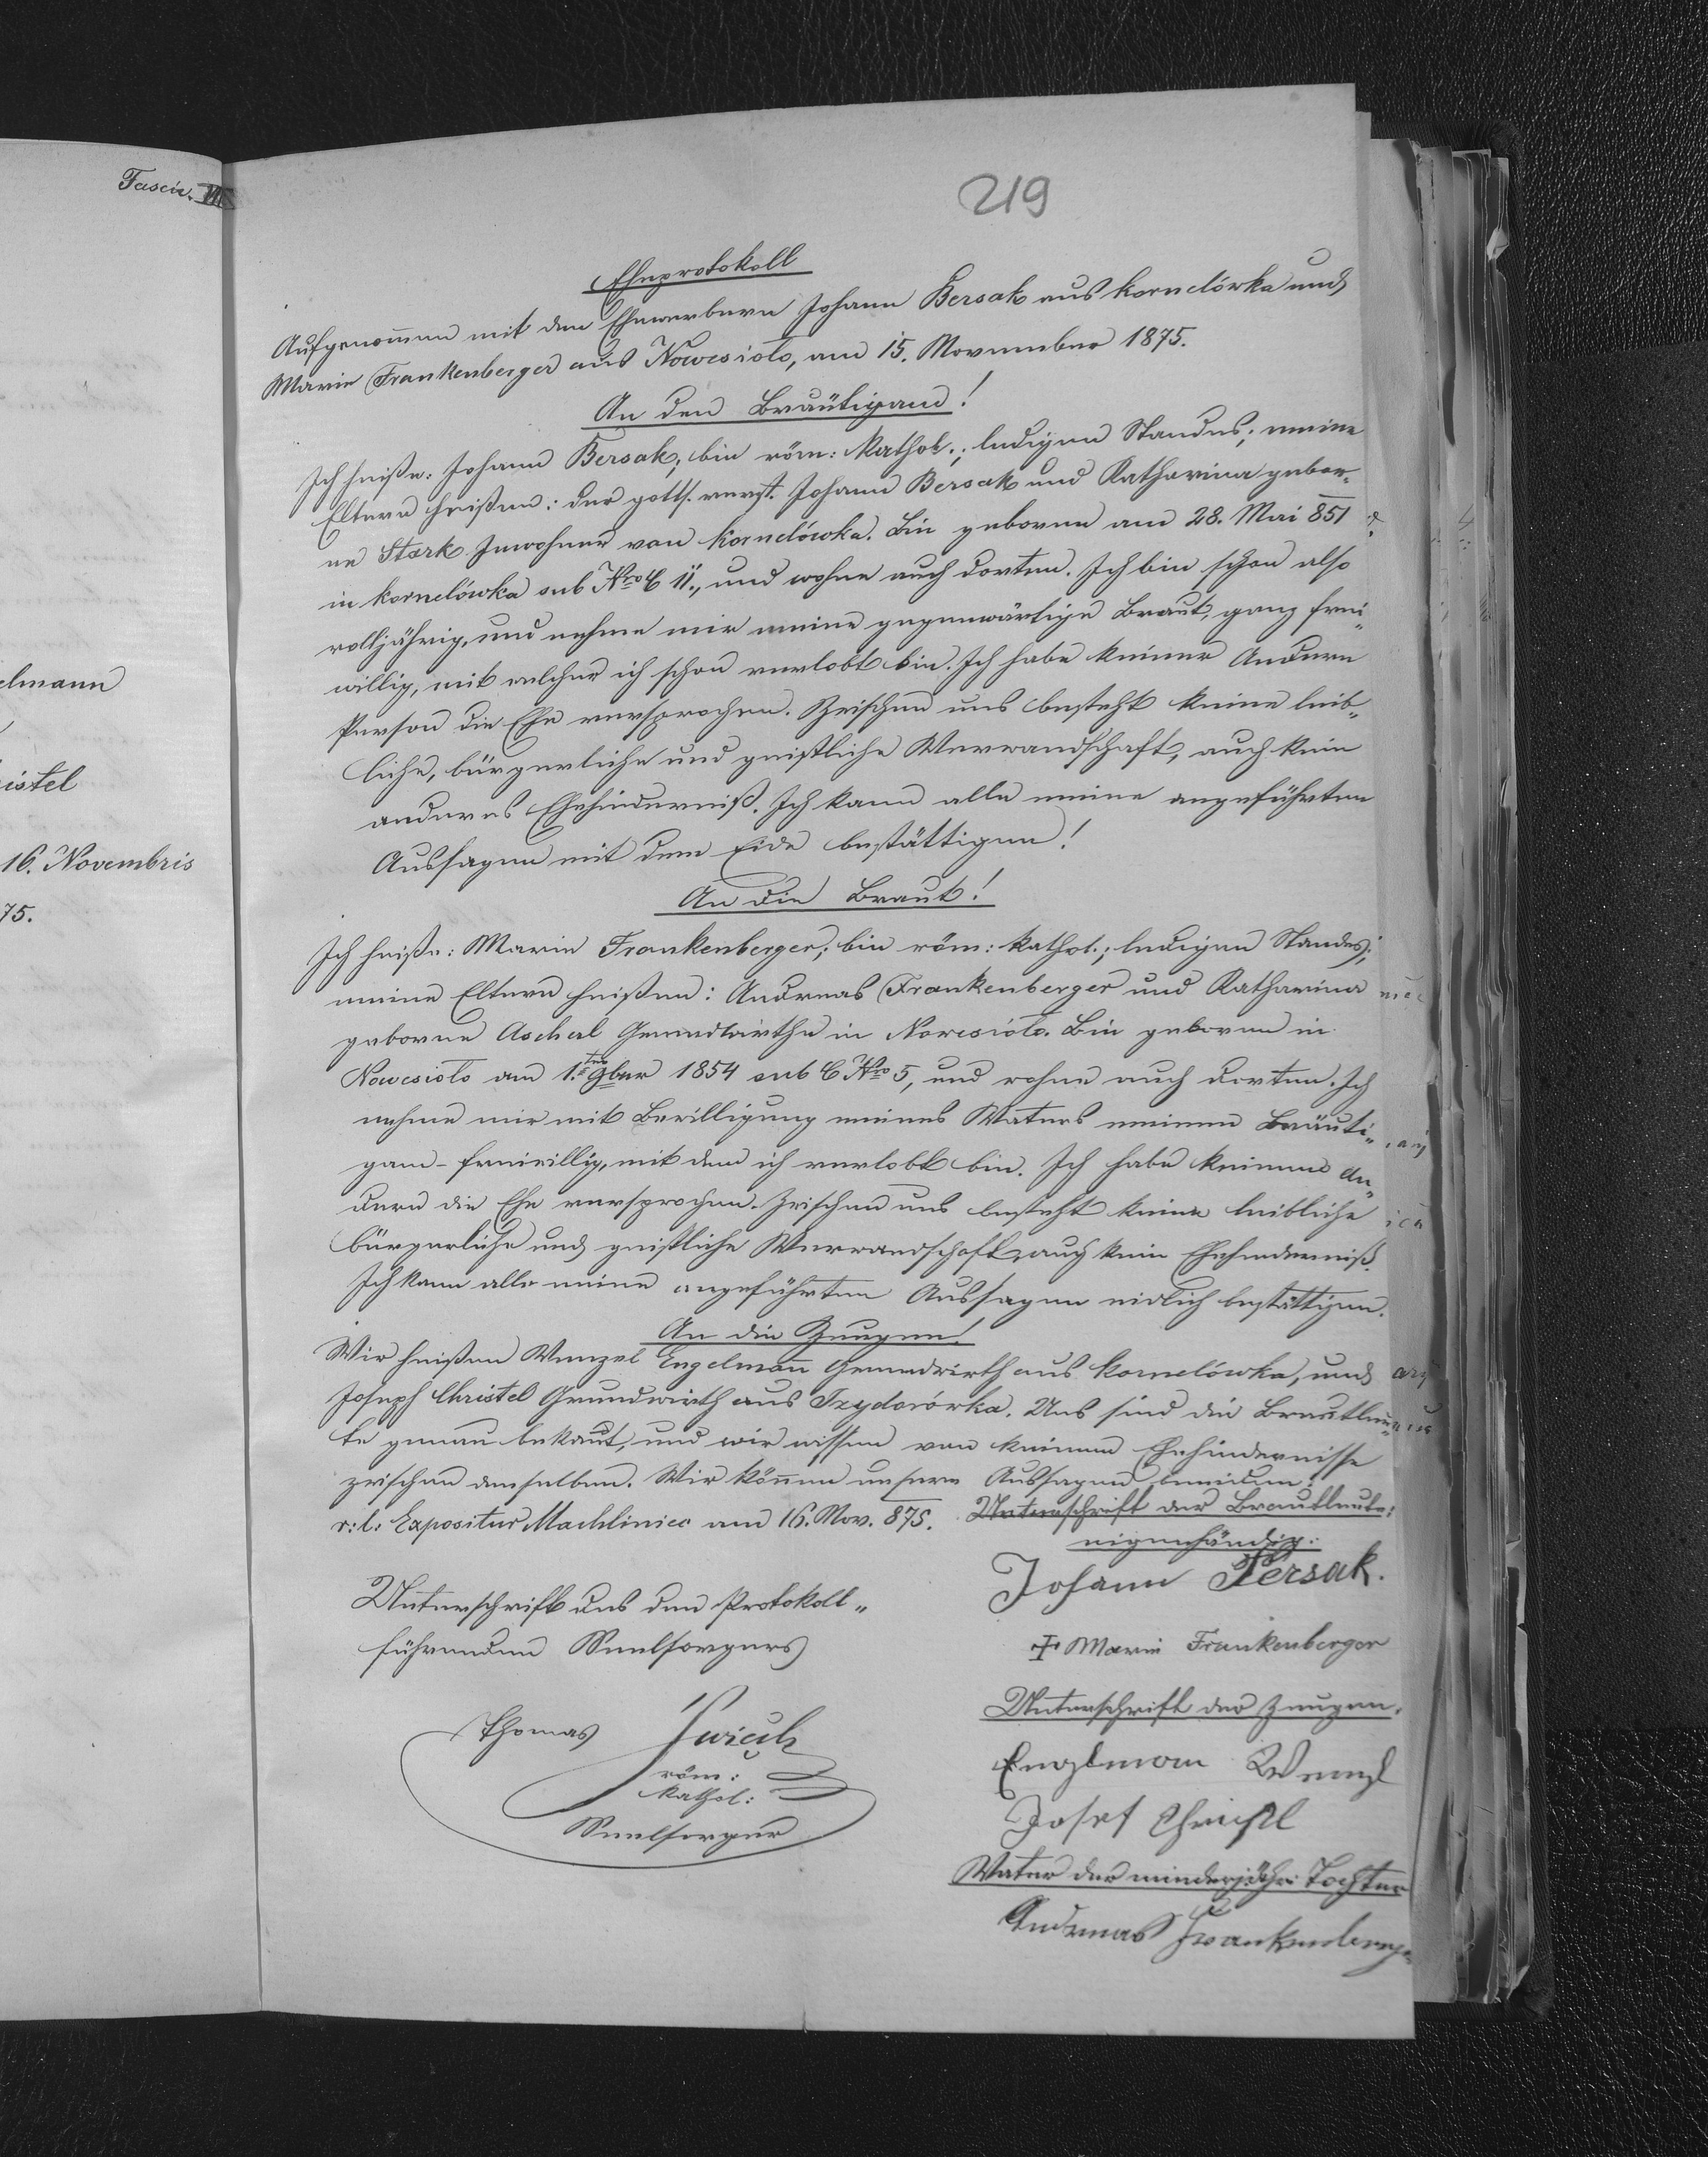 Fascic. VII
elmann
istel
16. Novembris
75.
219
Eheprotokoll
Aufgenom̄en mit den Ehewerbern Johann Bersak aus Kornelówka und
Marie Frankenberger aus Nowesioło, am 15. November 1875.
An den Bräutigam!
Ich heiße: Johann Bersak; bin röm: kathol.; ledigen Standes; meine
Eltern heißen: der gotts. verst. Johann Bersak und Katharina gebor„
ne Stark Inwohner von Kornelówka. Bin geboren am 28. Mai 851
in Kornelówka sub Nro C 11., und wohne auch dorten. Ich bin schon also
volljährig, und nehme mir meine gegenwärtige Braut, ganz frei„
willig, mit welcher ich schon verlobt bin. Ich habe keiner Andern
Person die Ehe versprochen. Zwischen uns besteht keine leib„
liche, bürgerliche und geistliche Verwandschaft, auch kein
anderes Ehehinderniß. Ich kann alle meine angeführten
Aussagen mit dem Eide bestättigen!
An die Braut!
Ich heiße: Marie Frankenberger; bin röm: kathol.; ledigen Standes;
meine Eltern heißen: Andreas Frankenberger und Katharina
geborne Ascherl Grundwirthe in Nowesioło. Bin geboren in
Nowesioło am 1.ten 9ber 1854 sub C Nro 5, und wohne auch dorten. Ich
nehme mir mit Bewilligung meines Vaters meinen Bräuti„
gam freiwillig, mit dem ich verlobt bin. Ich habe keinem An„
dern die Ehe versprochen. Zwischen uns besteht keine leibliche
bürgerliche und geistliche Verwandschaft, auch kein Ehehinderniß.
Ich kann alle meine angeführten Aussagen eidlich bestättigen.
An die Zeugen!
Wir heißen Wenzel Engelman̄ Grundwirth aus Kornelówka, und
Joseph Christel Grundwirth aus Izydorówka. Uns sind die Brautleu„
te genau bekan̄t, und wir wissen von keinem Ehehindernisse
zwischen denselben. Wir kön̄en unsere Aussagen beeiden.
r: l: Expositur Machliniec am 16. Nov. 875. Unterschrift der Brautleute:
eigenhändig:
Johann Persak.
+ Marie Frankenberger
Unterschrift des den Protokoll„
führenden Seelsorgers
Thomas
röm:
kathol:
Seelsorger
Unterschrift der Zeugen.
Englman Wenzl
Josef Christl
Vater der minderjähr: Tochter
Andreas Frankenberge